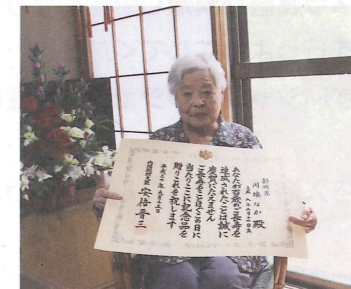 静岡県
川端なか 殿
あなたが百歳のご長寿を
達成されたことは誠に
慶賀にたえません
ご長寿をことほぐこの日に
当たりここに記念品を
贈りこれを祝します
平成三十年九月十五日
内閣総理大臣 安倍晋三